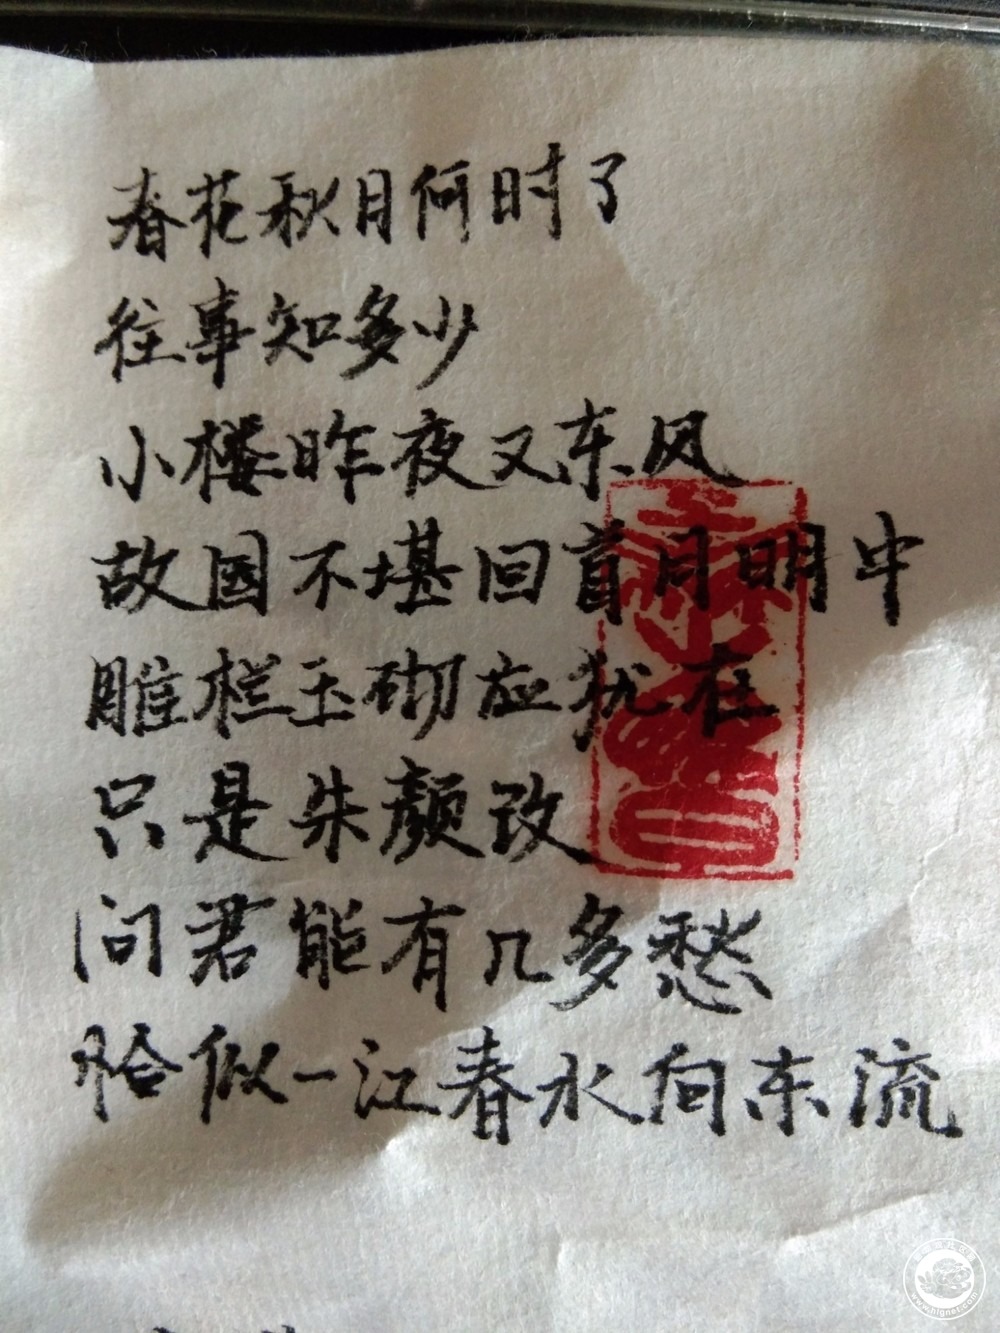 春花秋月何时了
往事知多少
小楼昨夜又东风
故国不堪回首月明中
雕栏玉砌应犹在
只是朱颜改
问君能有几多愁
恰似一江春水向东流
www.hlgnet.com